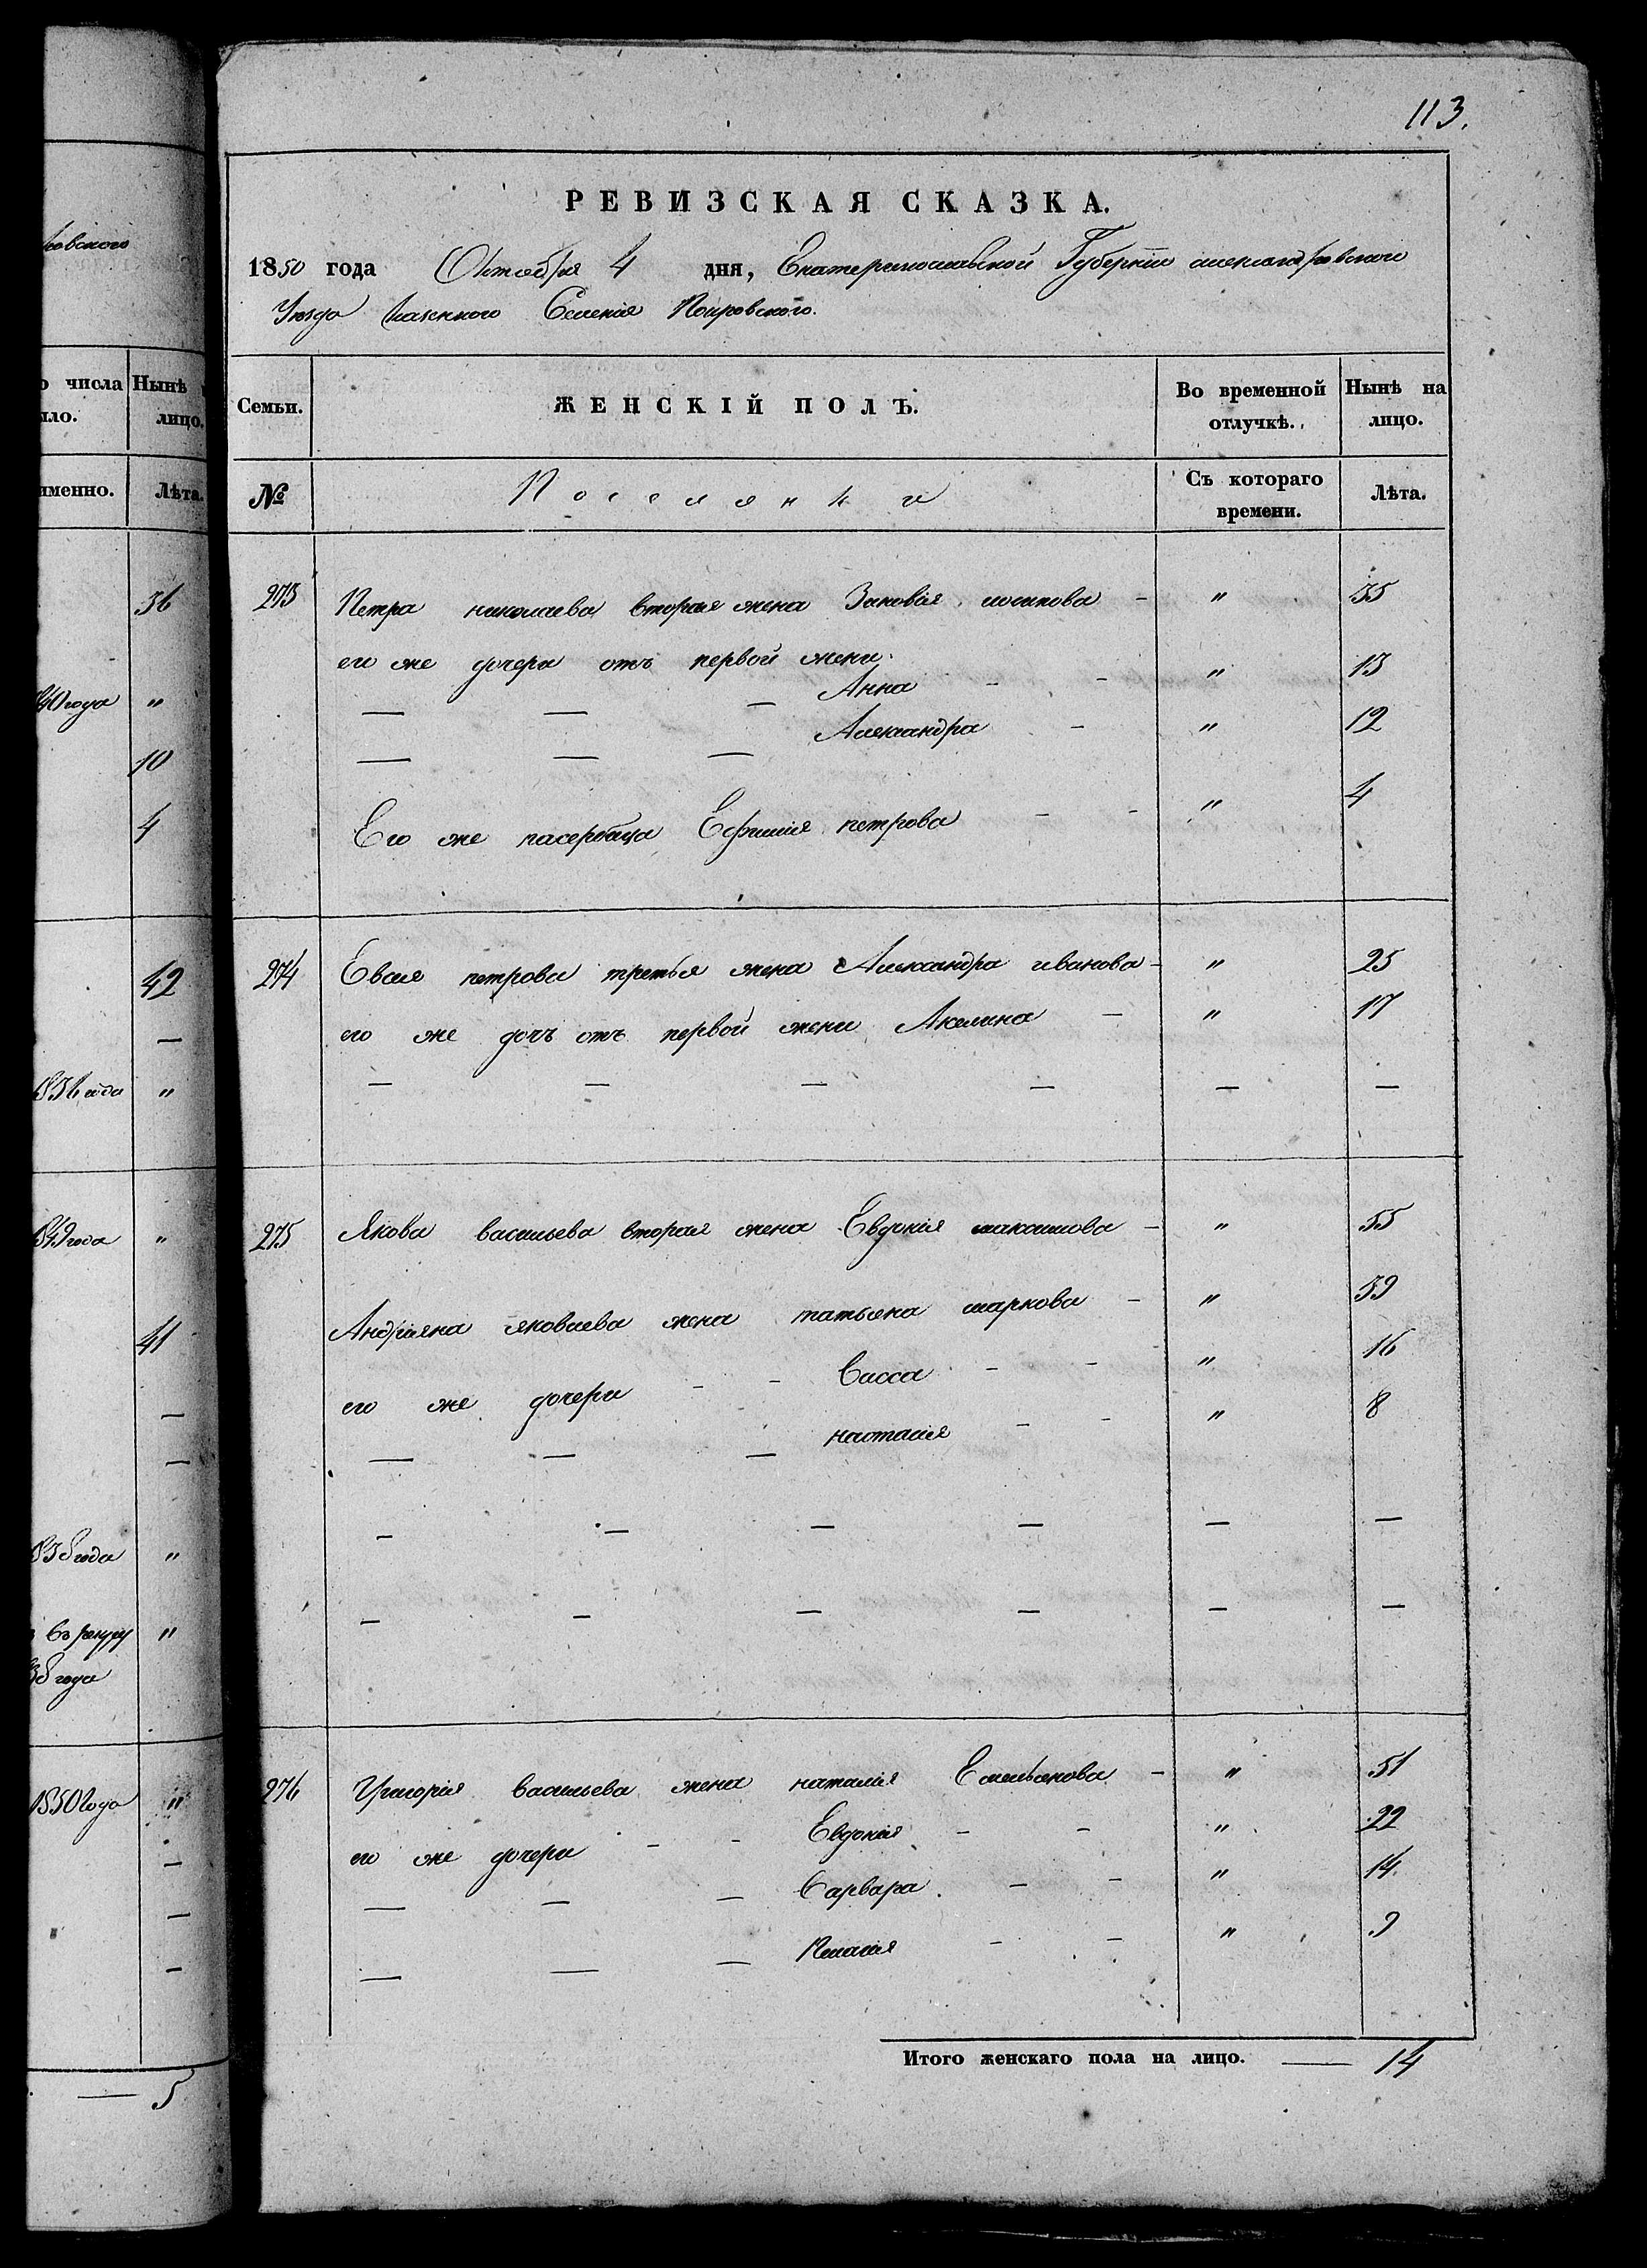 113.
РЕВИЗСКАЯ СКАЗКА.
1850 года Октября 4 дня, Екатеринославской Губернии александровского
Уезда Казенного Селенія Покровского.
Семьи.
ЖЕНСКІЙ ПОЛЪ.
Во временной отлучкѣ.
Нынѣ на лицо.
№
Поселянки
Съ котораго времени.
Лѣта.
273 Петра николаева вторая жена Зиновія - " 35
его же дочери отъ первой жени
Анна - - " 13
— — — Александра - " 12
— — —
Его же пасербица Ефимія петрова - - " 4
274 Евва петрова третья жена Александра иванова - " 25
его же дочъ отъ первой жени Акилина - " 17
— — — — — —
275 Якова васильева вторая жена Евдокія максимова - " 55
Андріяна яковлева жена татьяна маркова - " 39
его же дочери - - Васса - - " 16
— — — настасія - - " 8
— — — — — —
— — — — — —
276 Григорія васильева жена наталія Емельянова - " 51
его же дочери - - Евдокія - - " 22
— — — Варвара - - " 14
— — — Пелагия - - " 9
Итого женскаго пола на лицо. — 14
ковского
числа
ыло.
Нынѣ
лицо.
именно.
Лѣта.
36
840 года "
10
4
42
—
836 года "
849 года "
41
—
—
838 года "
въ рекруты "
38 года
1850 года "
—
—
—
— 5